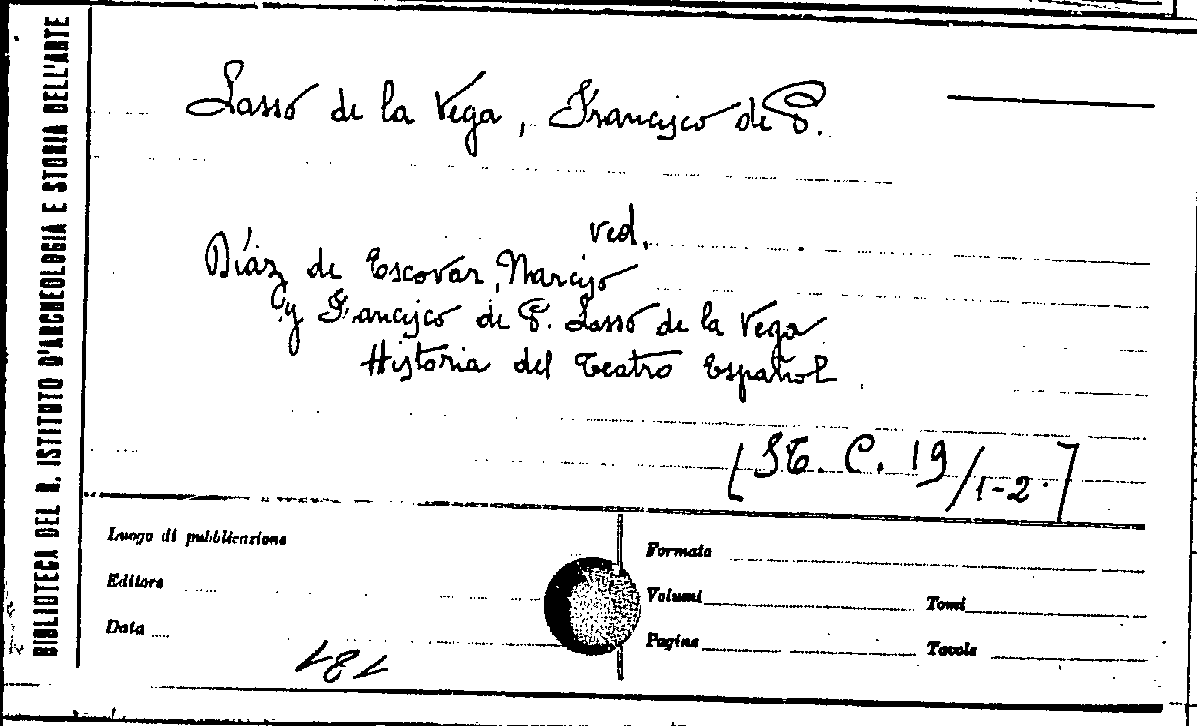 BIBLIOTECA DEL R. ISTITUTO D'ARCHEOLOGIA E STORIA DELL'ARTE
Lasso de la Vega, Francisco de P.
ved.
Díaz de Escovar, Narciso
y Francisco de P. Lasso de la Vega
Historia del Teatro Español
[St. C. 19/1-2.]
Luogo di pubblicazione
Editore
Data
Formato
Volumi Tomi
Pagine Tavole
181